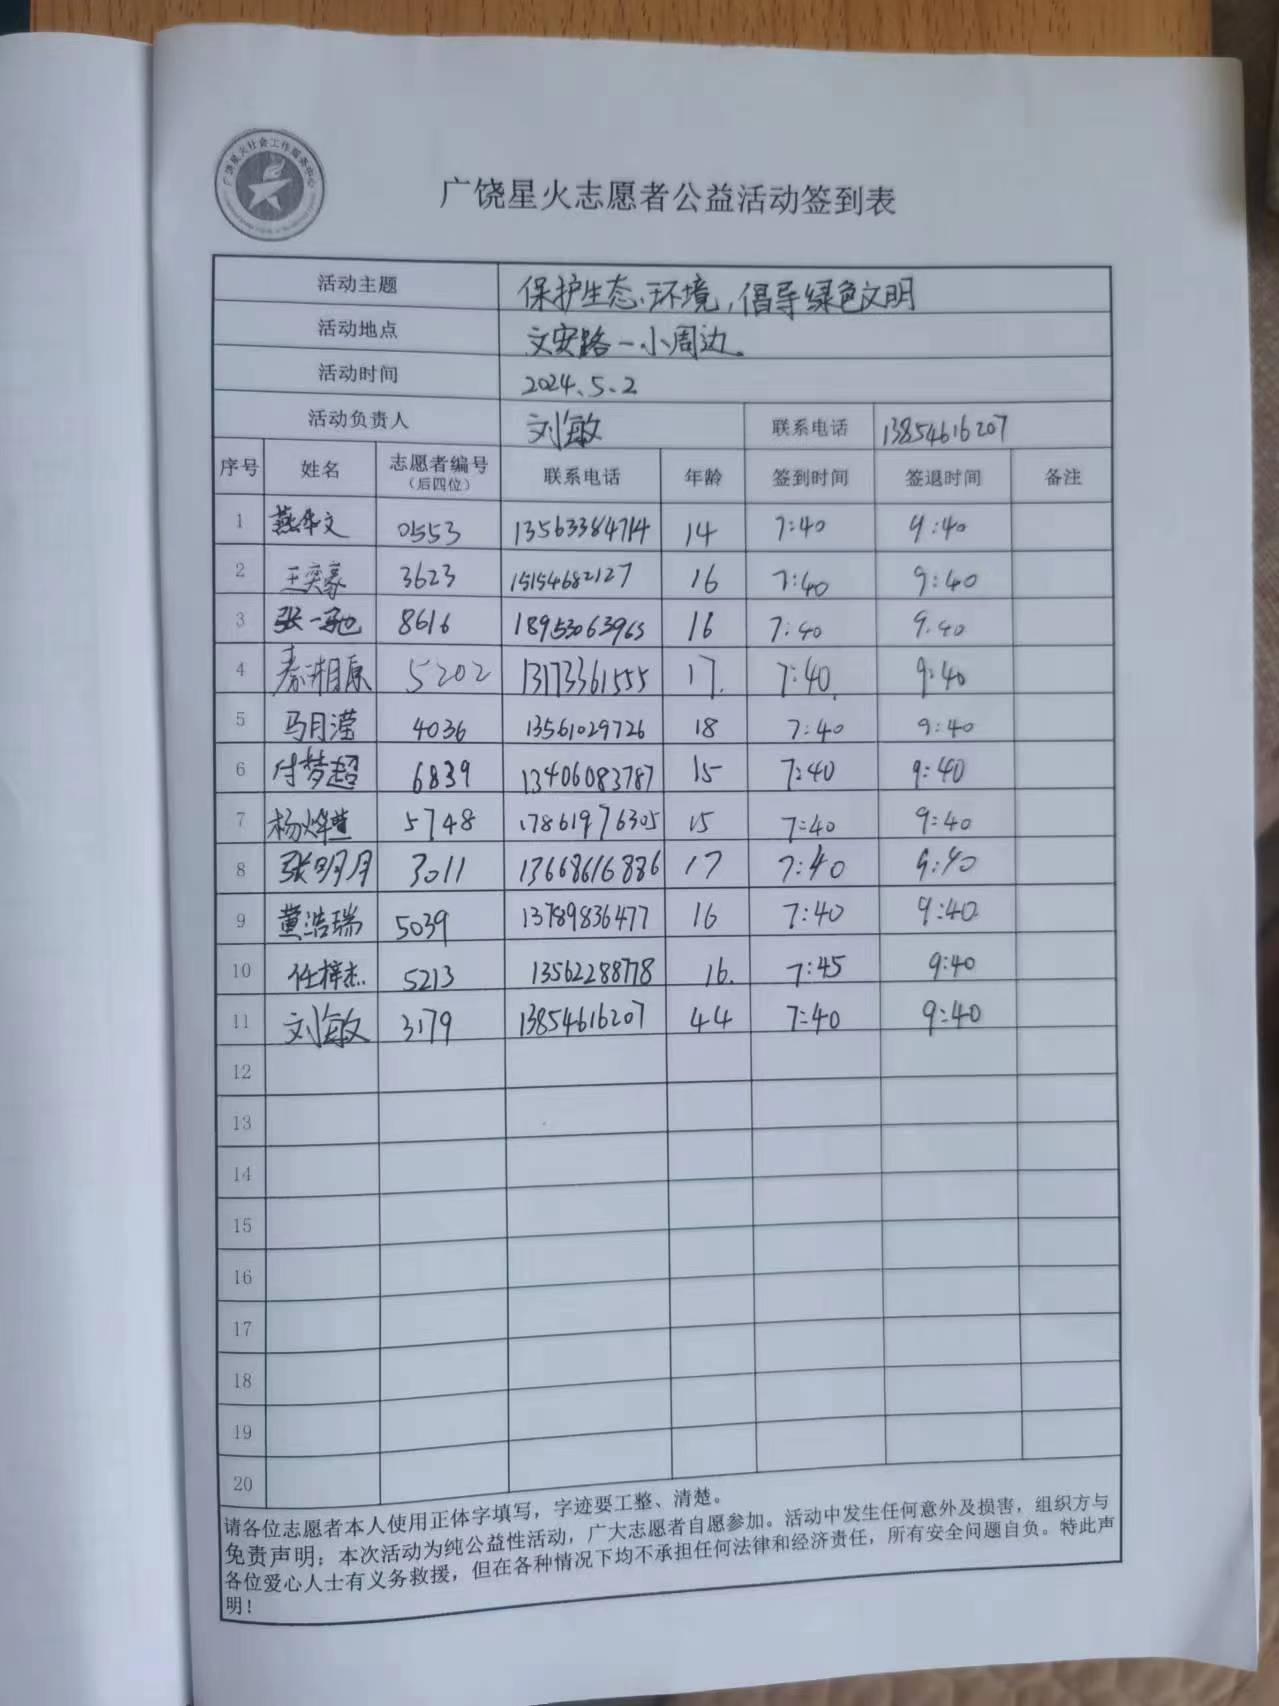 广饶星火社会工作服务中心
广饶星火志愿者公益活动签到表
活动主题 保护生态环境,倡导绿色文明
活动地点 文安路一小周边。
活动时间 2024、5、2
活动负责人 刘敏 联系电话 13854616207
序号 姓名 志愿者编号(后四位) 联系电话 年龄 签到时间 签退时间 备注
1 燕华文 0553 13563384714 14 7:40 9:40
2 王奕豪 3623 15154682127 16 7:40 9:40
3 张一驰 8616 18953063965 16 7:40 9.40
4 秦湘原 5202 13173361555 17. 7:40. 9:40
5 马月滢 4036 13561029726 18 7:40 9:40
6 付梦超 6839 13406083787 15 7:40 9:40
7 杨烨萱 5748 17861976305 15 7:40 9:40
8 张明月 3011 13668616886 17 7:40 9:40
9 黄浩瑞 5039 13789836477 16 7:40 9:40
10 任梓杰 5213 13562288778 16. 7:45 9:40
11 刘敏 3179 13854616207 44 7:40 9:40
12
13
14
15
16
17
18
19
20
请各位志愿者本人使用正体字填写，字迹要工整、清楚。
免责声明：本次活动为纯公益性活动，广大志愿者自愿参加。活动中发生任何意外及损害，组织方与
各位爱心人士有义务救援，但在各种情况下均不承担任何法律和经济责任，所有安全问题自负。特此声
明！